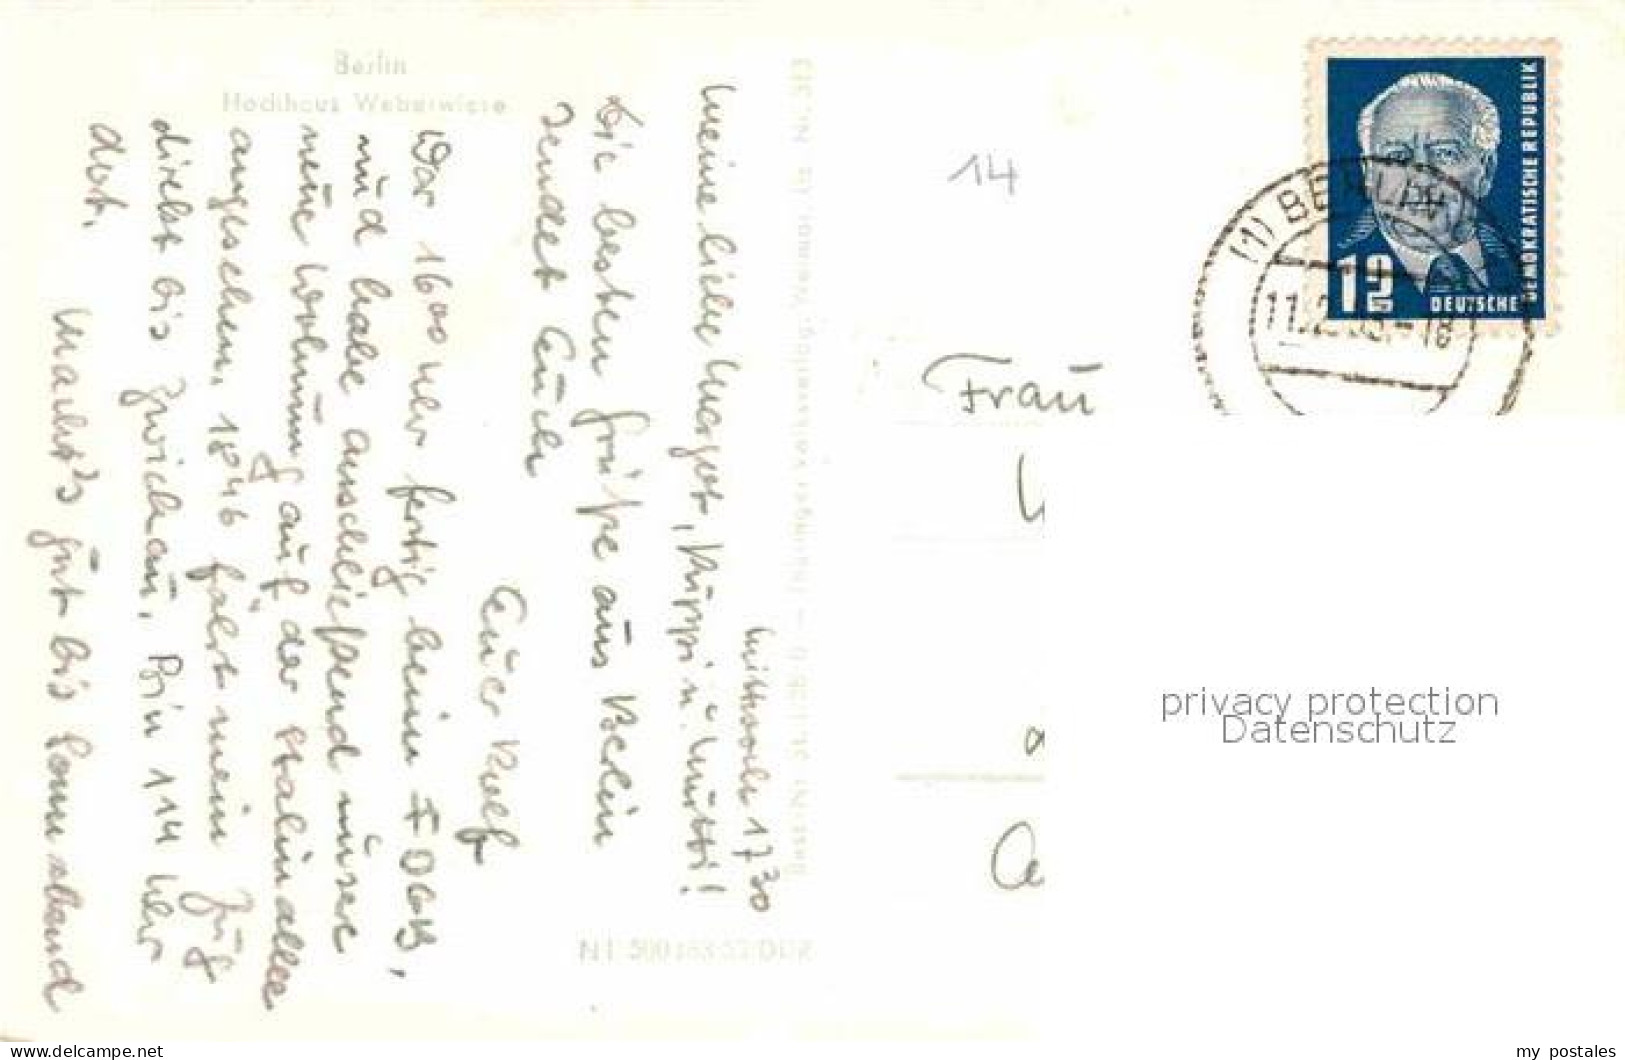 Berlin
Hochhaus Weberwiese
Mittwoch 17³⁰
Meine liebe Margot, Muppi u. Mutti!
Die besten Grüße aus Berlin
sendet Euch
Euer Rolf
War 16⁰⁰ Uhr fertig beim FDGB,
und habe anschließend unsere
neue Wohnung auf der Stalinallee
angesehen. 18⁴⁶ fährt mein Zug
direkt bis Zwickau. Bin 1¹⁴ Uhr
dort.
Macht's gut bis Sonnabend
Thüringer Volksverlag, Weimar
Nr. 313
14
Frau
DEUTSCHE DEMOKRATISCHE REPUBLIK
12
(1) BERLIN
privacy protection
Datenschutz
www.delcampe.net
my_postales